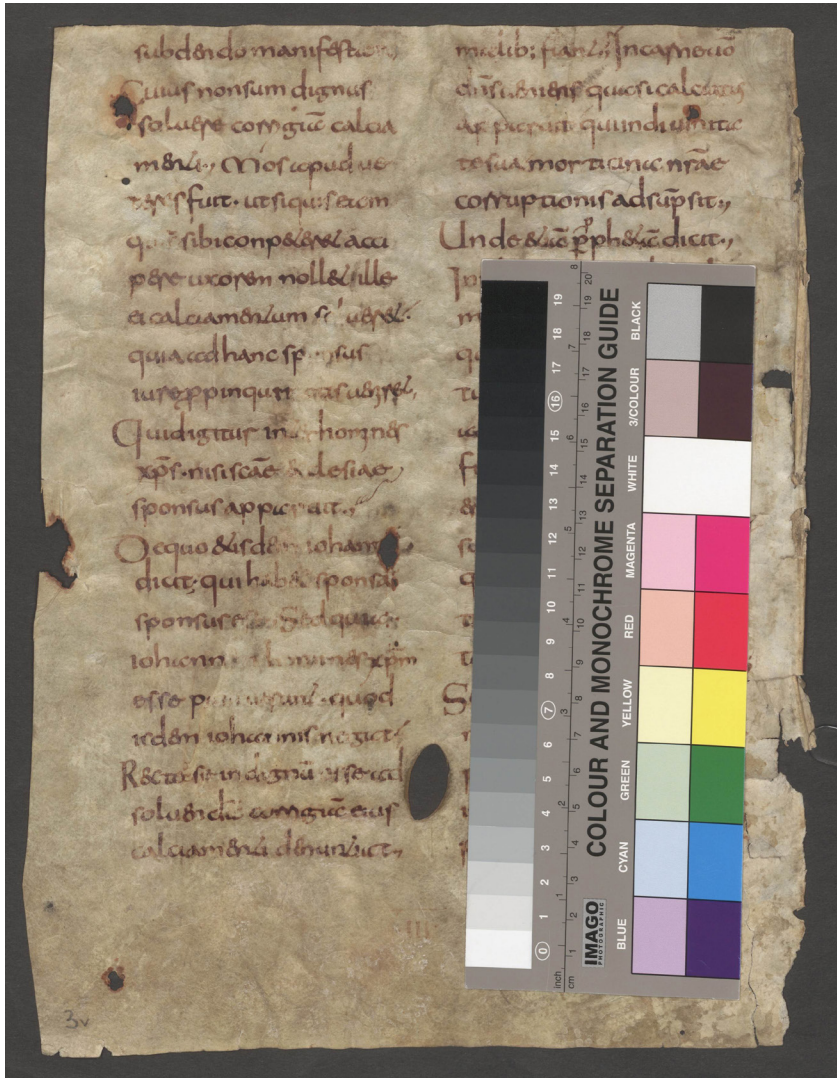 subdendo manifestans
Cuius non sum dignus
soluere corrigiā calcia
menti., Mos apud ue
teres fuit· ut si quis eam
quae sibi conpeteret acci
pere uxorem nollet ille
ei calciamentum solueret·
quia ad hanc sponsus
iure ꝓpinquitatis uenret.,
Quid igitur inter homines
xp̄s· nisi scāe ecclesiae
sponsus apparuit.,
De quo et isdem iohannes
dicit· qui habet sponsā
sponsus est Sed quia
iohannem homines xpm̄
esse putauerunt· quod
isdem iohannis negat·
Recte se indignū esse ad
soluendā corrigiā eius
calciamenti denuntiat.,
malib: fiant., Incarnatus
dns̄ ueniens quasi calciatus
apparuit· qui in diuinita
te sua morticina nrāe
corruptionis adsūpsit.,
Unde etiā ꝑ ꝓphetā dicit.,
III
3v
COLOUR AND MONOCHROME SEPARATION GUIDE
BLACK
3/COLOUR
WHITE
MAGENTA
RED
YELLOW
GREEN
CYAN
BLUE
IMAGO
PHOTOGRAPHIC
inch
cm